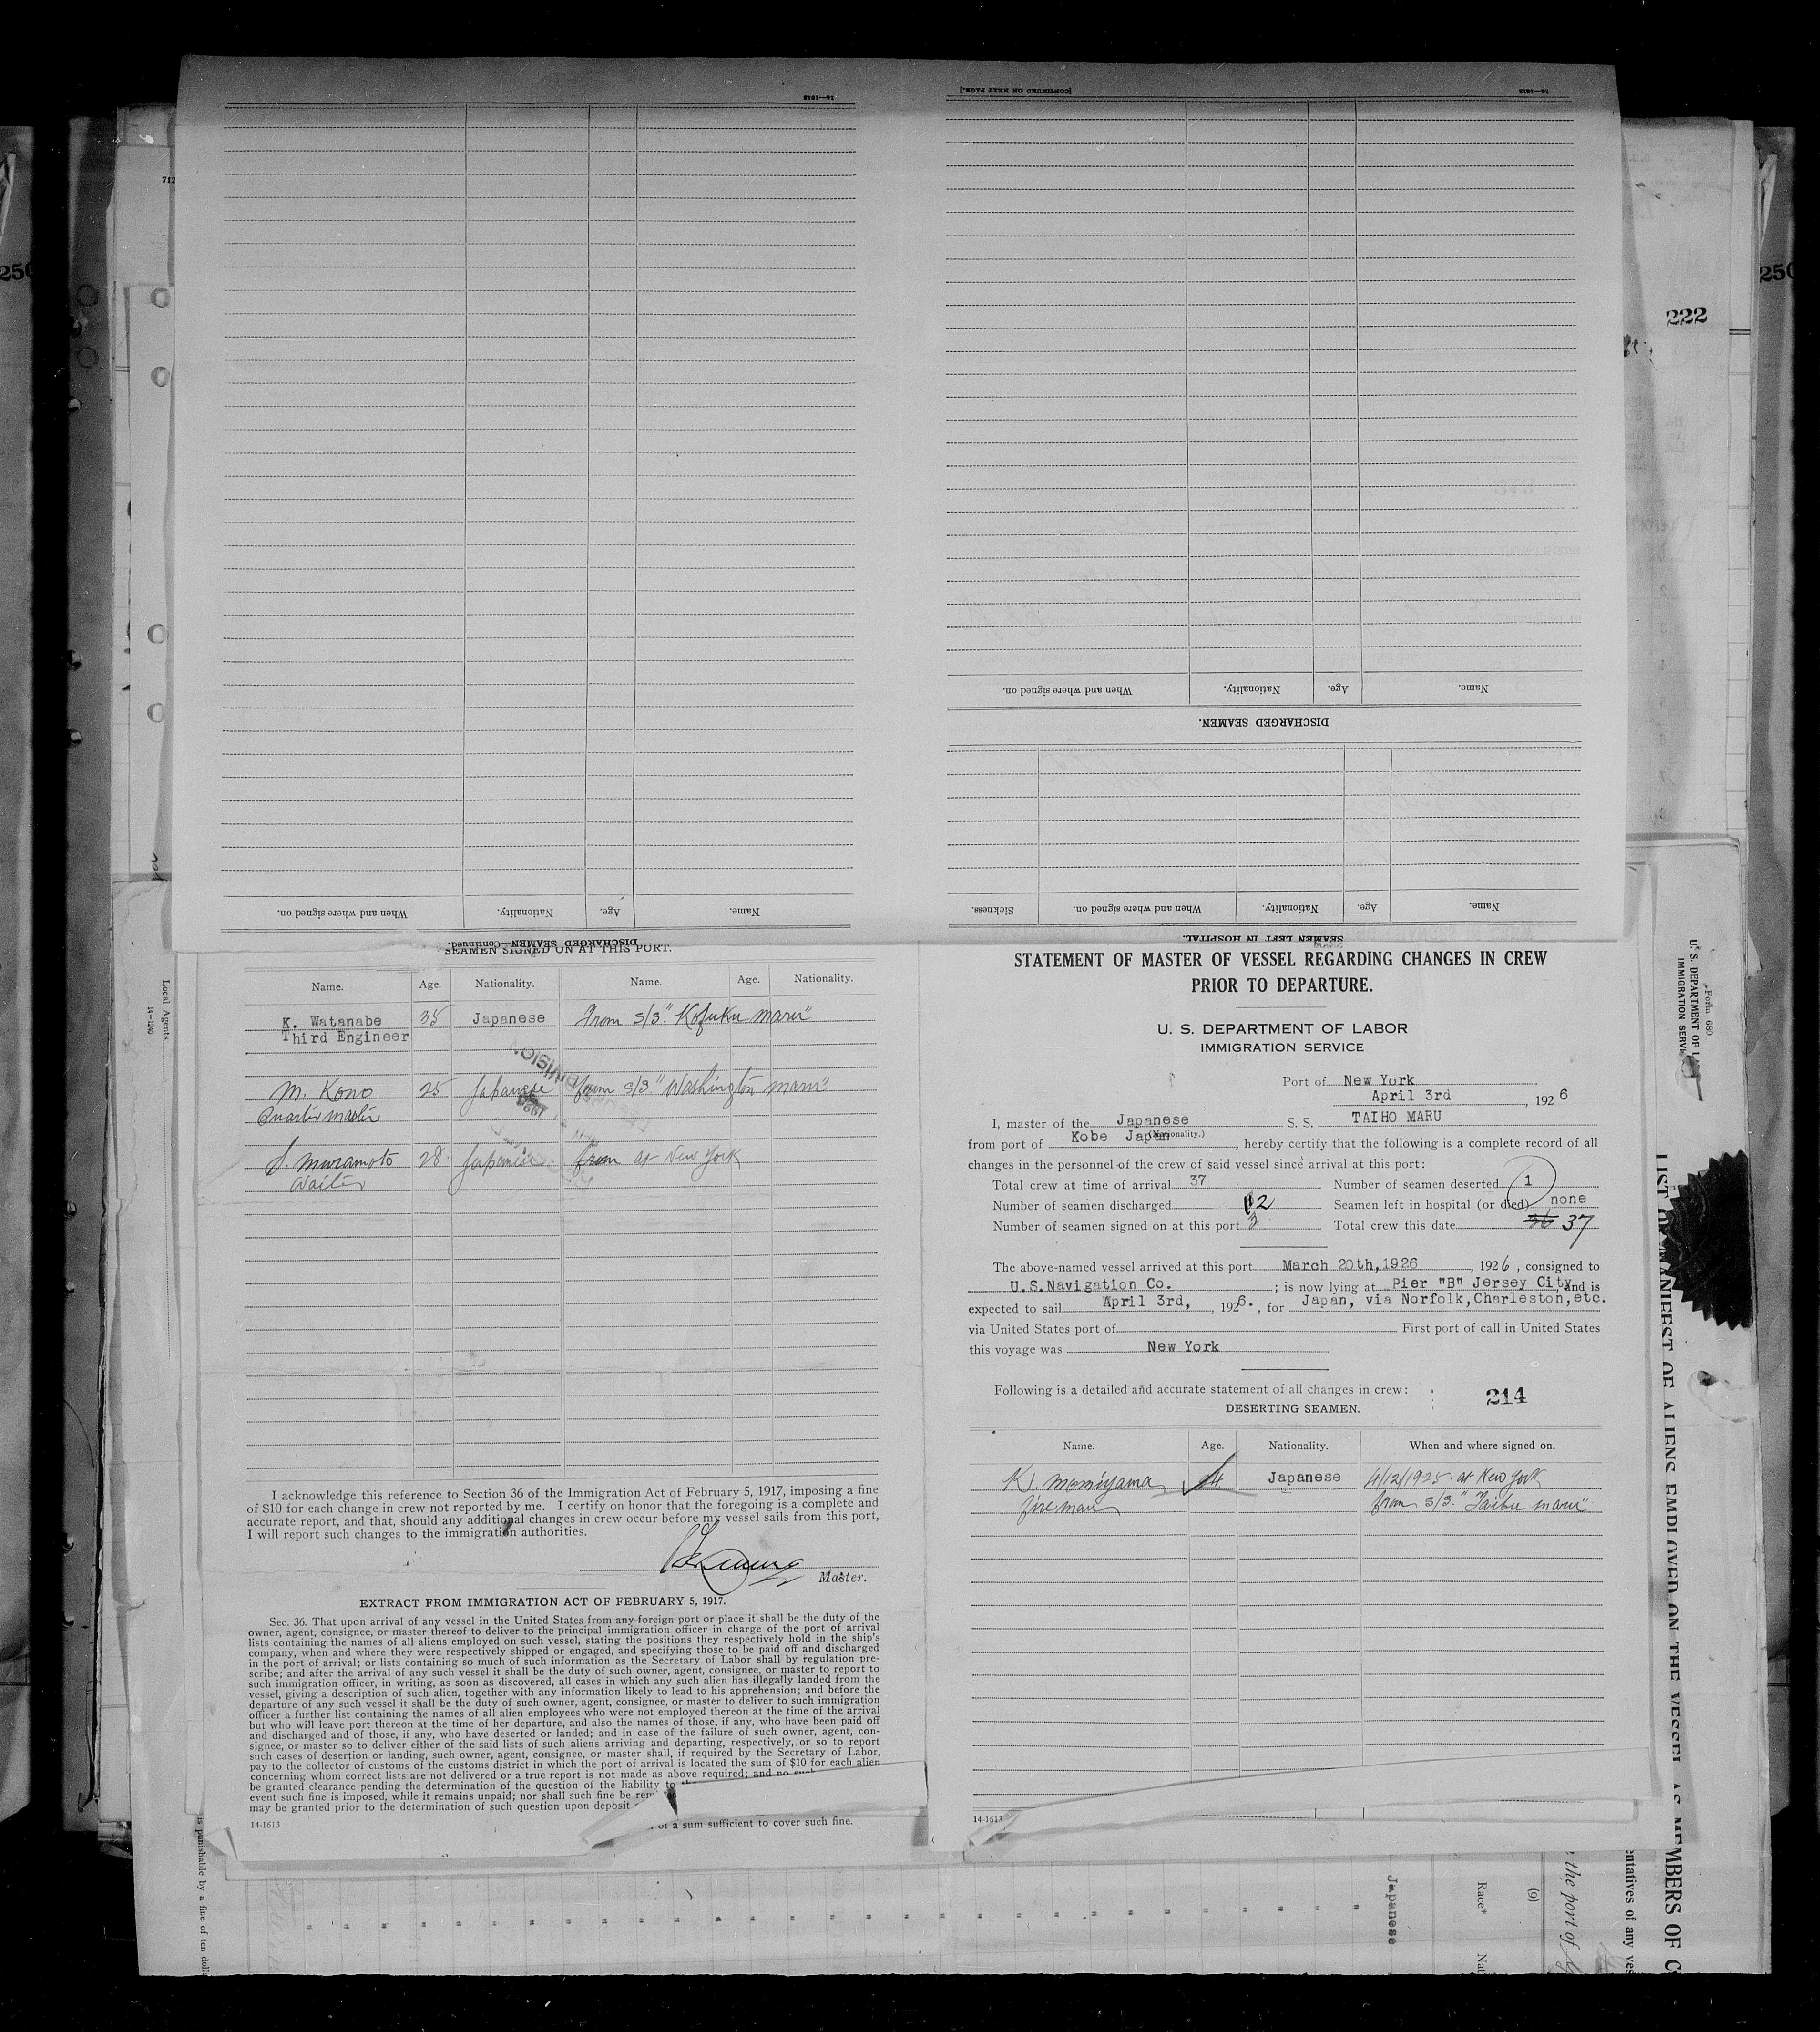 14—1613
[CONTINUED ON NEXT PAGE.]
14—1613
When and where signed on.
Nationality.
Age.
Name.
DISCHARGED SEAMEN.
Name.
Age.
Nationality.
When and where signed on.
DISCHARGED SEAMEN—Continued.
Sickness.
When and where signed on.
Nationality.
Age.
Name.
SEAMEN LEFT IN HOSPITAL.
712
250
250
222
SEAMEN SIGNED ON AT THIS PORT.
Name. Age. Nationality. Name. Age. Nationality.
K. Watanabe 35 Japanese From S/S. "Kofuku Maru"
Third Engineer
M. Kono 25 Japanese from S/S. "Washington Maru"
Quarter master
S. Muramoto 28 Japanese from at New York
Waiter
DIVISION
I acknowledge this reference to Section 36 of the Immigration Act of February 5, 1917, imposing a fine
of $10 for each change in crew not reported by me. I certify on honor that the foregoing is a complete and
accurate report, and that, should any additional changes in crew occur before my vessel sails from this port,
I will report such changes to the immigration authorities.
Master.
EXTRACT FROM IMMIGRATION ACT OF FEBRUARY 5, 1917.
Sec. 36. That upon arrival of any vessel in the United States from any foreign port or place it shall be the duty of the
owner, agent, consignee, or master thereof to deliver to the principal immigration officer in charge of the port of arrival
lists containing the names of all aliens employed on such vessel, stating the positions they respectively hold in the ship's
company, when and where they were respectively shipped or engaged, and specifying those to be paid off and discharged
in the port of arrival; or lists containing so much of such information as the Secretary of Labor shall by regulation pre-
scribe; and after the arrival of any such vessel it shall be the duty of such owner, agent, consignee, or master to report to
such immigration officer, in writing, as soon as discovered, all cases in which any such alien has illegally landed from the
vessel, giving a description of such alien, together with any information likely to lead to his apprehension; and before the
departure of any such vessel it shall be the duty of such owner, agent, consignee, or master to deliver to such immigration
officer a further list containing the names of all alien employees who were not employed thereon at the time of the arrival
but who will leave port thereon at the time of her departure, and also the names of those, if any, who have been paid off
and discharged and of those, if any, who have deserted or landed; and in case of the failure of such owner, agent, con-
signee, or master so to deliver either of the said lists of such aliens arriving and departing, respectively, or so to report
such cases of desertion or landing, such owner, agent, consignee, or master shall, if required by the Secretary of Labor,
pay to the collector of customs of the customs district in which the port of arrival is located the sum of $10 for each alien
concerning whom correct lists are not delivered or a true report is not made as above required; and no such
be granted clearance pending the determination of the question of the liability to
event such fine is imposed, while it remains unpaid; nor shall such fine be
may be granted prior to the determination of such question upon deposit
of a sum sufficient to cover such fine.
14-1613
STATEMENT OF MASTER OF VESSEL REGARDING CHANGES IN CREW
PRIOR TO DEPARTURE.
U. S. DEPARTMENT OF LABOR
IMMIGRATION SERVICE
Port of New York
April 3rd, 1926
I, master of the Japanese S. S. TAIHO MARU
(Nationality.)
from port of Kobe Japan, hereby certify that the following is a complete record of all
changes in the personnel of the crew of said vessel since arrival at this port:
Total crew at time of arrival 37 Number of seamen deserted 1
Number of seamen discharged 2 Seamen left in hospital (or died) none
Number of seamen signed on at this port 3 Total crew this date 36 37
The above-named vessel arrived at this port March 20th,1926, 1926, consigned to
U.S.Navigation Co.; is now lying at Pier "B" Jersey City, and is
expected to sail April 3rd, , 1926. , for Japan, via Norfolk,Charleston,etc.
via United States port of First port of call in United States
this voyage was New York
Following is a detailed and accurate statement of all changes in crew:
214
DESERTING SEAMEN.
Name. Age. Nationality. When and where signed on.
K. Momiyama Japanese 4/12/1925. at New York
fireman from S/S. "Taibu Maru"
14-1613
Local Agents
14-1240
Form 680
U. S. DEPARTMENT OF
IMMIGRATION SERV
LIST OR MANIFEST OF ALIENS EMPLOYED ON THE VESSEL AS MEMBERS OF
entatives of any ves
the port of
(9)
Race*
Japanese
is punishable by a fine of ten